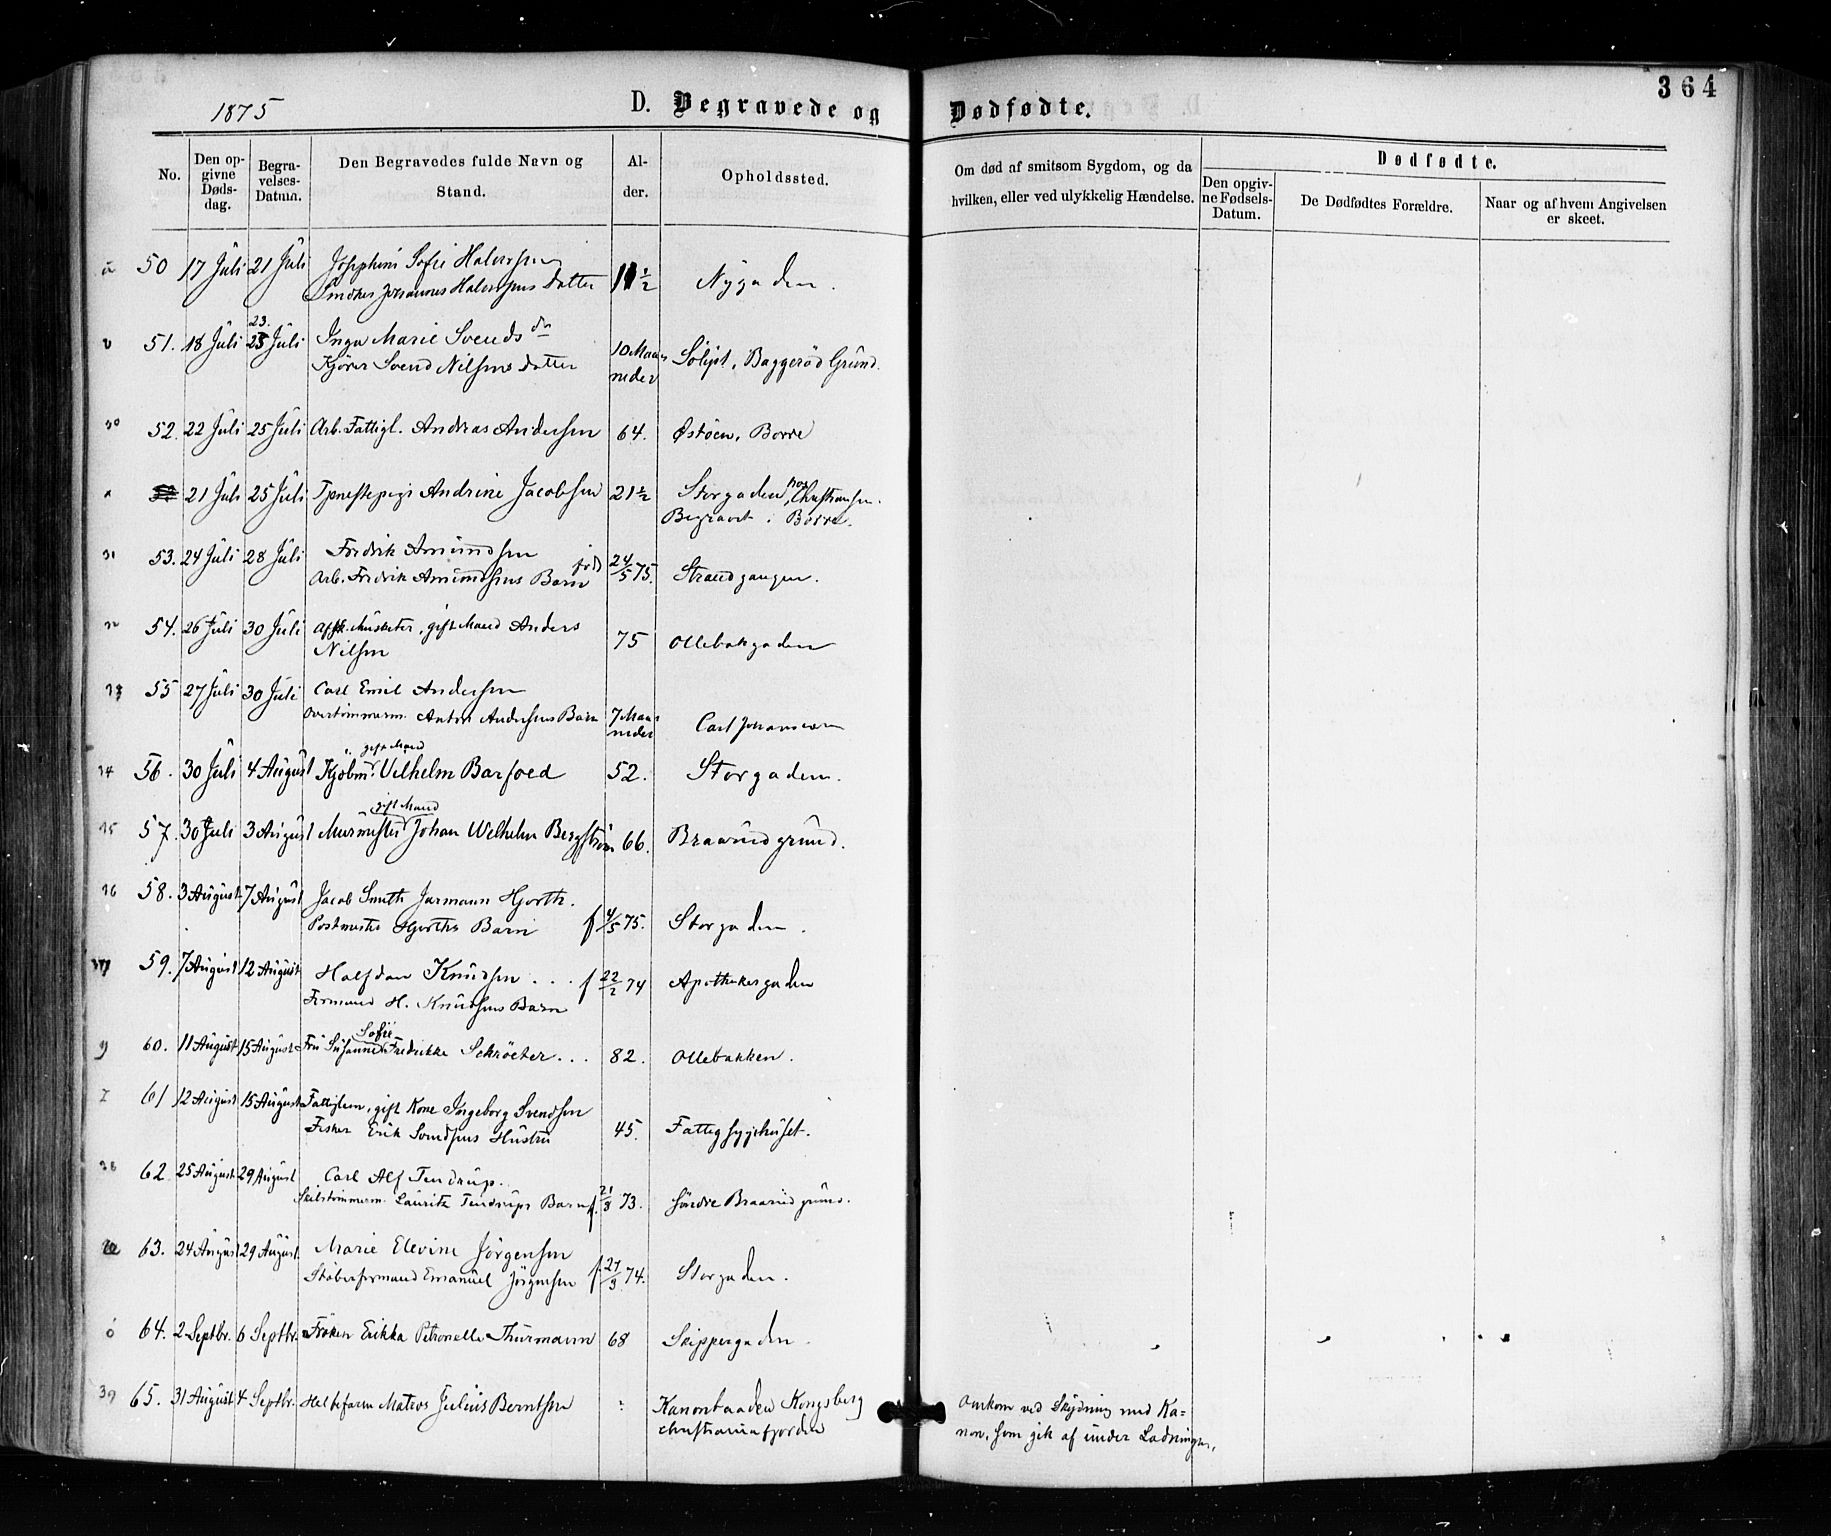 364
1875 D. Begravede og Dødfødte.
No. Den opgivne Dødsdag. Begravelses-Datum. Den Begravedes fulde Navn og Stand. Alder. Opholdssted. Om død af smitsom Sygdom, og da hvilken, eller ved ulykkelig Hændelse. Dødfødte.
Den opgivne Fødsels-Datum. De Dødfødtes Forældre. Naar og af hvem Angivelsen er skeet.
50 17 Juli 21 Juli Josephine Sofie Halvorsen
Johannes Halvorsens Datter 1 1/2 Nygaden.
23.
51. 18 Juli 23 Juli Inga Marie Svendsdr
Svend Nilsens Datter 10 Maaneder Solyst, Baggerød Grund.
30 52. 22 Juli 25 Juli Arb. Fattigl. Andreas Andersen 64. Østøen, Borre
21 Juli 25 Juli Tjenestepige Andrine Jacobsen 21 1/2 Storgaden, hos Christiansen.
Begravet i Borre.
31 53. 24 Juli 28 Juli Fredrik Amundsen
Arb. Fredrik Amundsens Barn født 24/5 75. Strandgangen.
32 54. 26 Juli 30 Juli Afsk. Musketer, gift Mand Anders
Nilsen 75 Ollebakgaden
33 55 27 Juli 30 Juli Carl Emil Andersen
Overtømmerm. Anton Andersens Barn 7 Maaneder Carl Johansværn
gift Mand
34 56. 30 Juli 4 August Kjøbm. Vilhelm Barfoed 52. Storgaden.
gift Mand
35 57. 30 Juli 3 August Murmester Johan Welhelm Bergstrøm 66. Braarudgrund.
36 58. 3 August 7 August Jacob Smith Jarmann Hjorth.
Postmester Hjorths Barn f 4/5 75. Storgaden.
37 59. 7 August 12 August Halfdan Knudsen . . . f 22/2 74 Apothekergaden
Formand H. Knudsens Barn
Sofie
y 60. 11 August 15 August Fru Susanne Fredrikke Schrøeter . . . 82. Ollebakken.
z 61 12 August 15 August Fattiglem, gift Kone Ingeborg Svendsen
Fisker Erik Svendsens Hustru 45. Fattigsygehuset.
38 62 25 August 29 August Carl Alf Tendrup.
Lauritz Tendrups Barn f. 21/8 73. Søndre Braarudgrund.
æ 63. 24 August 29 August Marie Elevine Jørgensen
Støberformand Emanuel Jørgensen f. 27/3 74. Storgaden.
ó 64. 2 Septbr. 6 Septbr. Frøken Erikka Petronelle Thurmann 68 Skippergaden.
39 65. 31 August 4 Septbr. Matros Julius Berntsen Kanonbaaden Kongsberg
Christianiafjorden
Omkom ved Skydning med Ka=
non, som gik af under Ladningen.